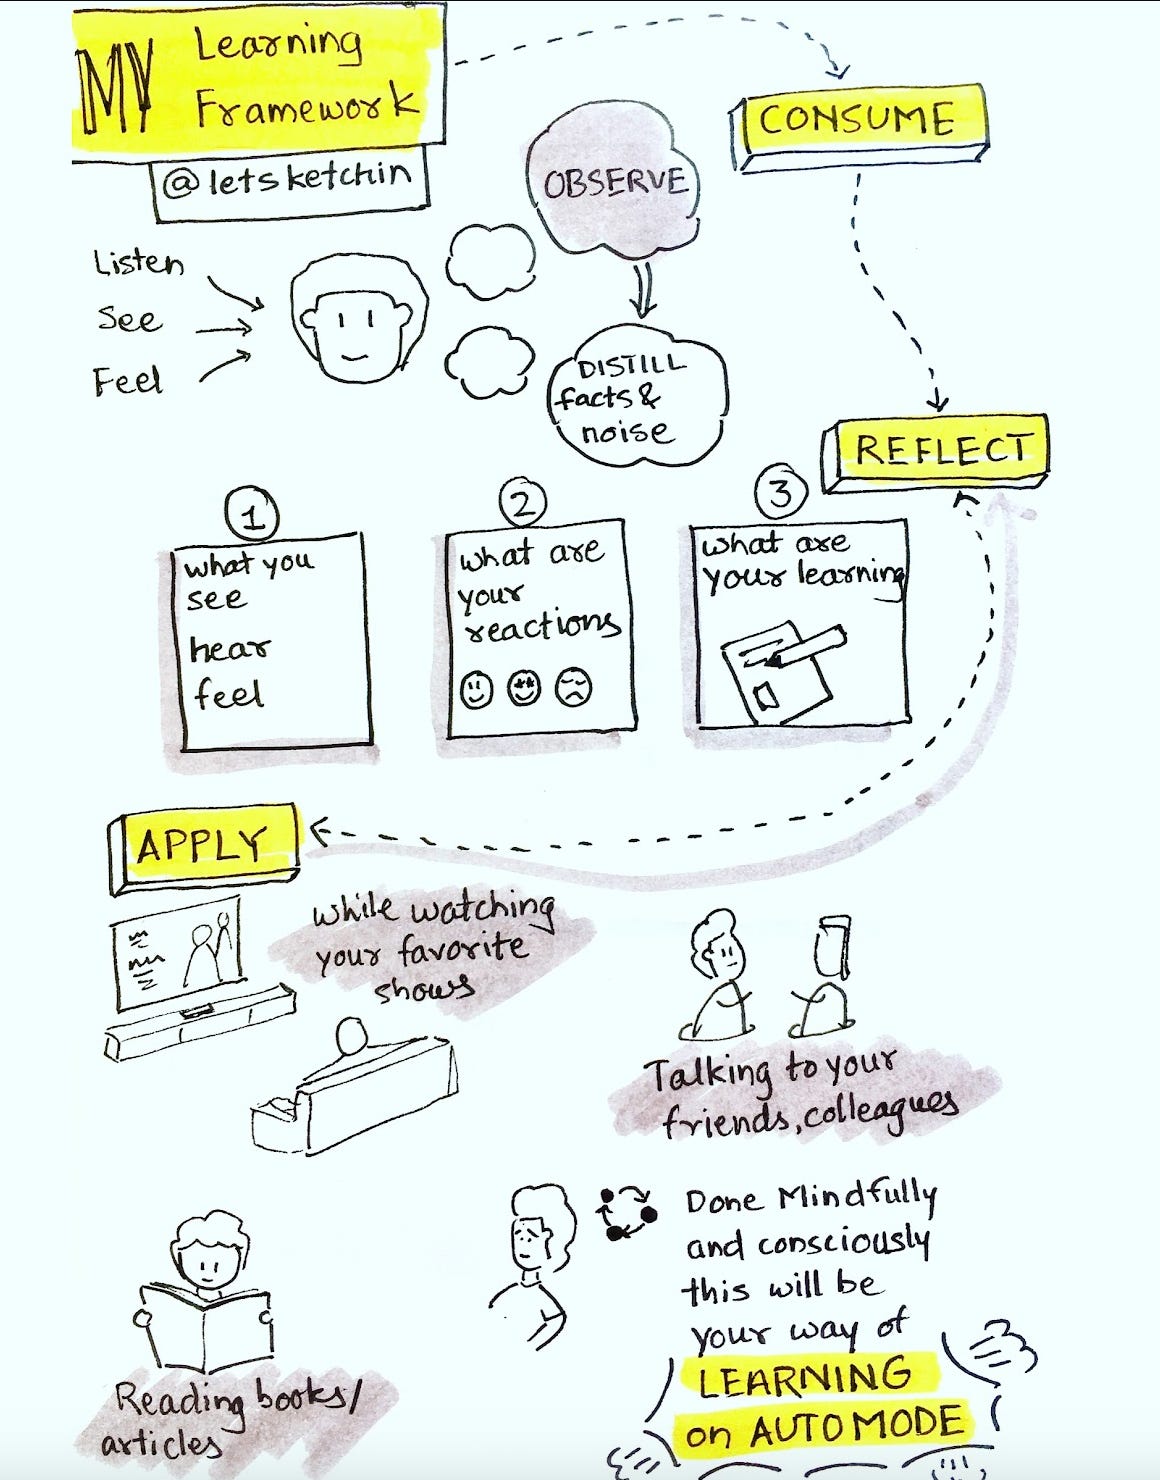 MY Learning
Framework
@letsketchin
CONSUME
OBSERVE
Listen
See
Feel
DISTILL
facts &
noise
REFLECT
1
what you
see
hear
feel
2
what are
your
reactions
3
what are
your learning
APPLY
while watching
your favorite
shows
Talking to your
friends, colleagues
Reading books/
articles
Done Mindfully
and consciously
this will be
your way of
LEARNING
on AUTO MODE